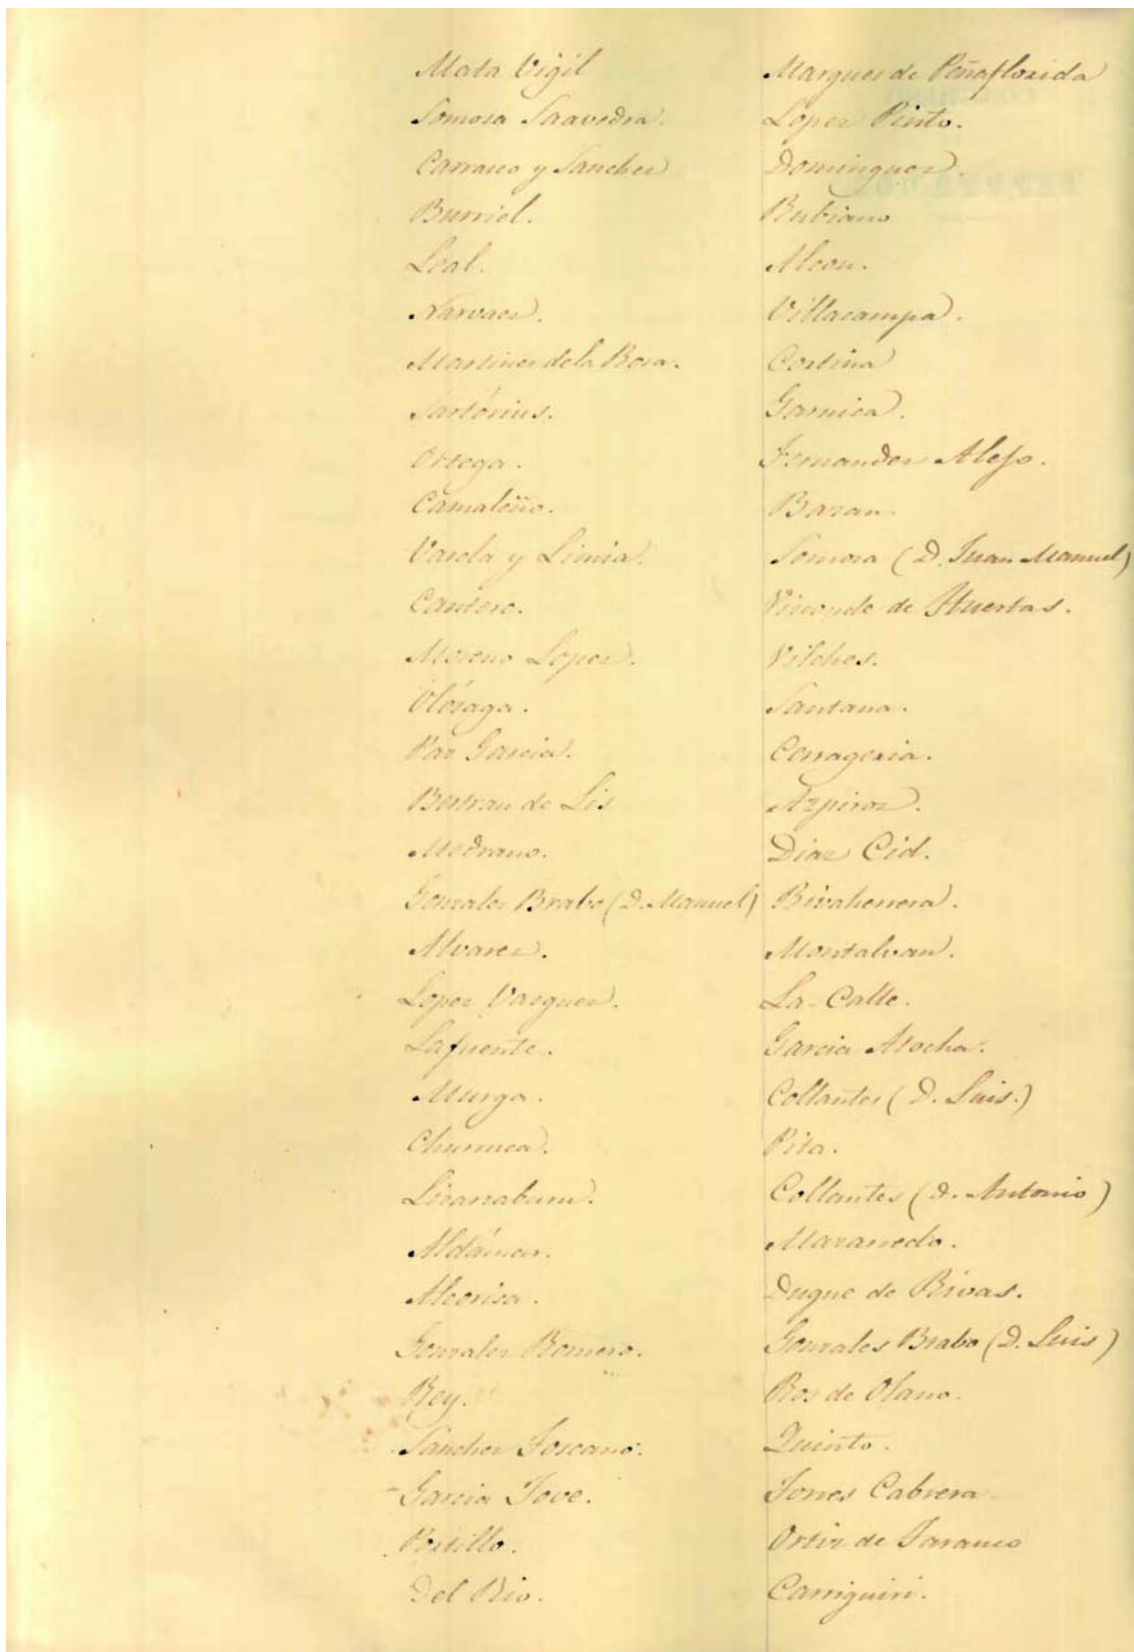 Mata Vigil
Somosa Saavedra.
Carrasco y Sanchez
Burriel.
Leal.
Narvaez.
Martinez de la Rosa.
Sartórius.
Ortega.
Camaleño.
Varela y Limia.
Cantero.
Moreno Lopez.
Olózaga.
Paz Garcia.
Bertran de Lis
Medrano.
Gonzalez Brabo (D. Manuel)
Alvarez.
Lopez Vazquez.
Lafuente.
Murga.
Churruca.
Lizarzaburu.
Aldámar.
Alcorisa.
Gonzalez Romero.
Rey.
Sanchez Toscano.
Garcia Jove.
Portillo.
Del Rio.
Marques de Peñaflorida
Lopez Pinto.
Dominguez.
Rubiano
Alcon.
Villacampa.
Cortina
Garnica.
Fernandez Alejo.
Bazan.
Somoza (D. Juan Manuel)
Vizconde de Huertas.
Vilches.
Santana.
Cerrageria.
Azpiroz.
Diaz Cid.
Rivaherrera.
Montalvan.
La-Calle.
Garcia Atocha.
Collantes (D. Luis.)
Pita.
Collantes (D. Antonio)
Mazarredo.
Duque de Rivas.
Gonzales Brabo (D. Luis)
Ros de Olano.
Quinto.
Torres Cabrera.
Ortiz de Taranco
Carriquiri.